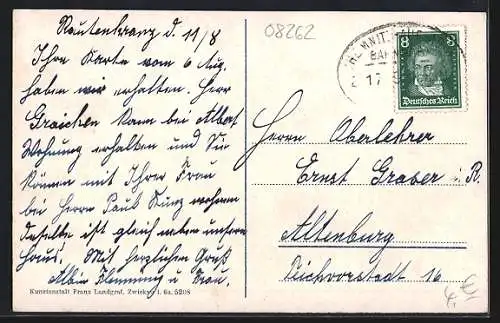 Rautenkranz d. 11/8
Ihre Karte vom 6 Aug.
haben wir erhalten. Herr
Graichen kann bei Albert
Wohnung erhalten und Sie
können mit Ihrer Frau
bei Herrn Paul Kunz wohnen
daselbe ist gleich neben unsern
Haus. Mit herzlichen Gruß
Albin Flemming u Frau.
Kunstanstalt Franz Landgraf, Zwickau i. Sa. 5208
08262
17
8 8
Deutsches Reich
Herrn Oberlehrer
Ernst Graber i. R.
Altenburg
Teichvorstadt 16